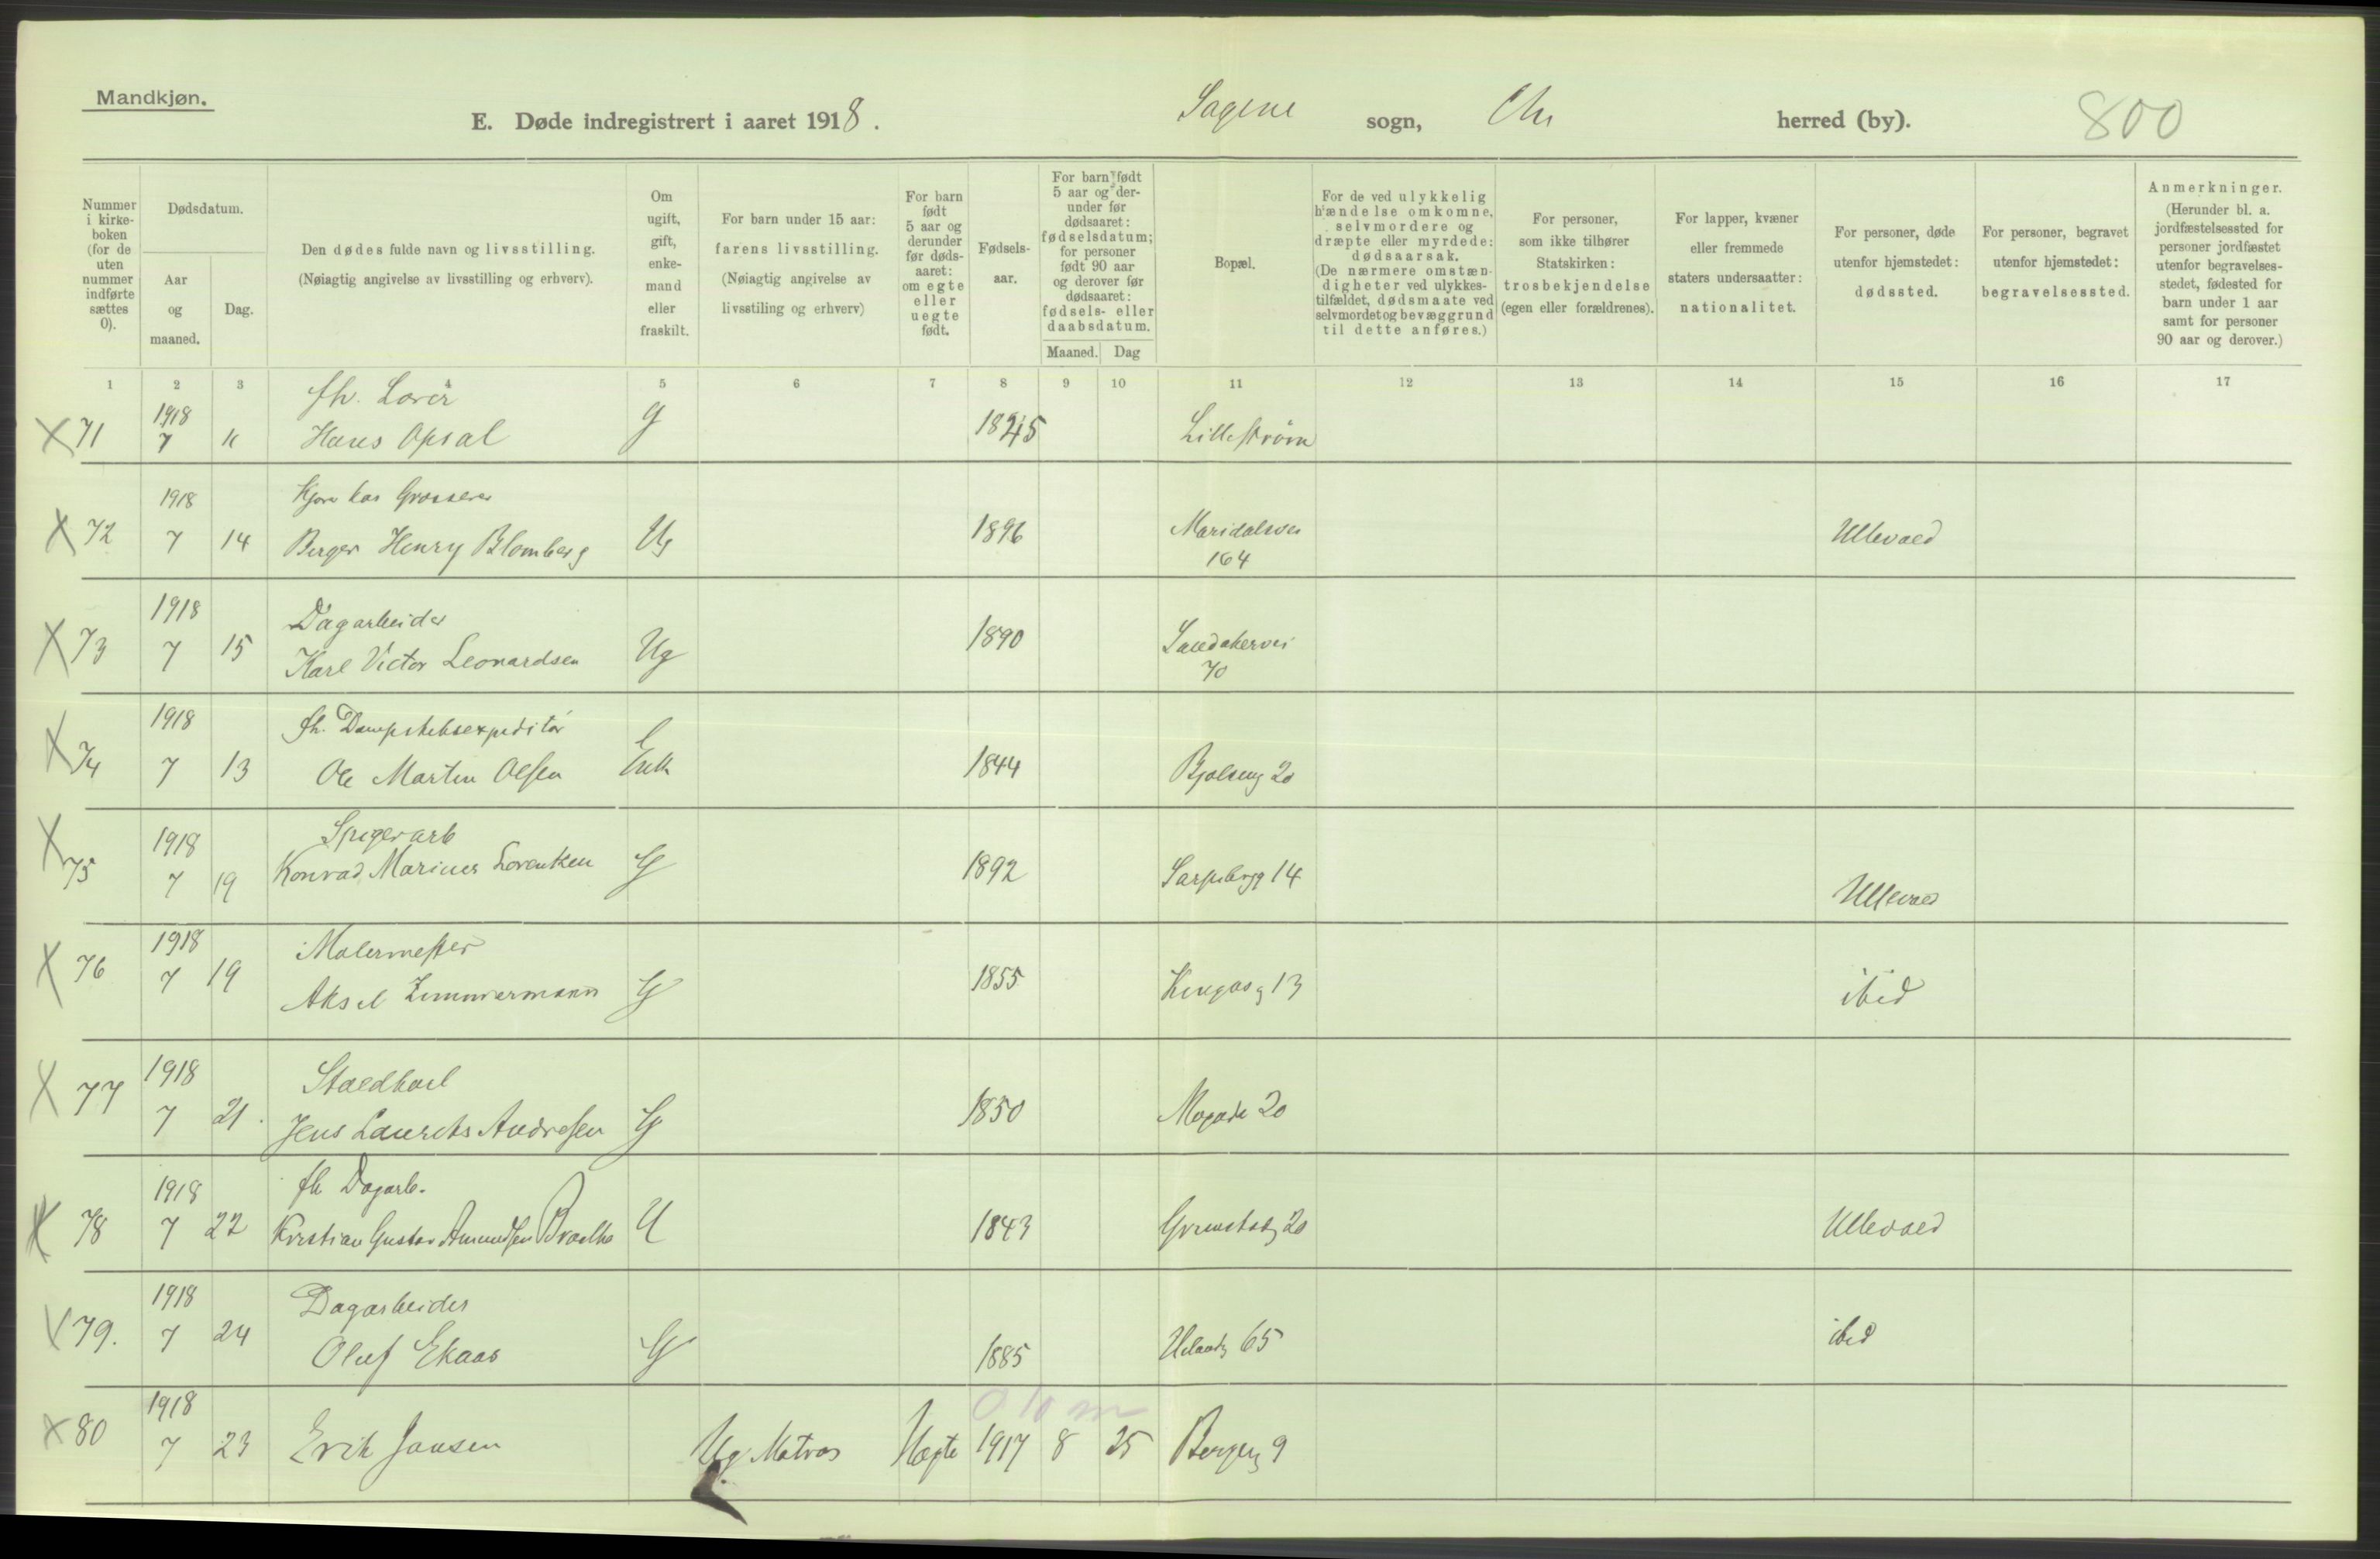 Mandkjøn.
E. Døde indregistrert i aaret 1918. Sagene sogn, Chr herred (by). 800
Nummer i kirke- boken (for de uten nummer indførte sættes 0).
Dødsdatum.
Aar og maaned.
Dag.
Den dødes fulde navn og livsstilling.
(Nøiagtig angivelse av livsstilling og erhverv).
Om ugift, gift, enke- mand eller fraskilt.
For barn under 15 aar: farens livsstilling.
(Nøiagtig angivelse av livsstiling og erhverv)
For barn født 5 aar og derunder før døds- aaret: om egte eller uegte født.
Fødsels- aar.
For barn født 5 aar og der- under før dødsaaret: fødselsdatum; for personer født 90 aar og derover før dødsaaret: fødsels- eller daabsdatum.
Maaned. Dag
Bopæl.
For de ved ulykkelig hændelse omkomne, selvmordere og dræpte eller myrdede: dødsaarsak.
(De nærmere omstæn- digheter ved ulykkes- tilfældet, dødsmaate ved selvmordet og bevæggrund til dette anføres.)
For personer, som ikke tilhører Statskirken: trosbekjendelse (egen eller forældrenes).
For lapper, kvæner eller fremmede staters undersaatter: nationalitet.
For personer, døde utenfor hjemstedet: dødssted.
For personer, begravet utenfor hjemstedet: begravelsessted.
Anmerkninger.
(Herunder bl. a. jordfæstelsessted for personer jordfæstet utenfor begravelses- stedet, fødested for barn under 1 aar samt for personer 90 aar og derover.)
1 2 3 4 5 6 7 8 9 10 11 12 13 14 15 16 17
1918 fh.
X 71 7 Hans Opsal g 1845 Lillestrøm
1918 Grosserer
X 72 7 14 Birger Henry Blomberg Ug 1896 Maridalsvei
164
1918 Dagarbeider
X 73 7 15 Karl Victor Leonardsen Ug 1890 Sandakervei
70
1918 fh. Dampskibsexpeditør
X 74 7 13 Ole Martin Olsen Enk 1844 20
1918 Spigerarb
X 75 7 19 Konrad Marius Lorentzen G 1892 Sarpsbrgg 14 Ullevaal
1918 Malermester
X 76 7 19 Aksel Zimmermann G 1855 13 ibid
1918 Staldkarl
X 77 7 21. Jens Laurits Andresen G 1850 20
1918 fh Dagarb.
X 78 7 22 Kristian Gustav Amundsen U 1843 Grimstadg 20 Ullevaal
1918 Dagarbeider
X 79. 7 24 Oluf Ekaas G 1885 65 ibid
1918 0 10 m
X 80 7 23 Erik Jansen Ug Matros Uegte 1917 8 25 Bergeng 9